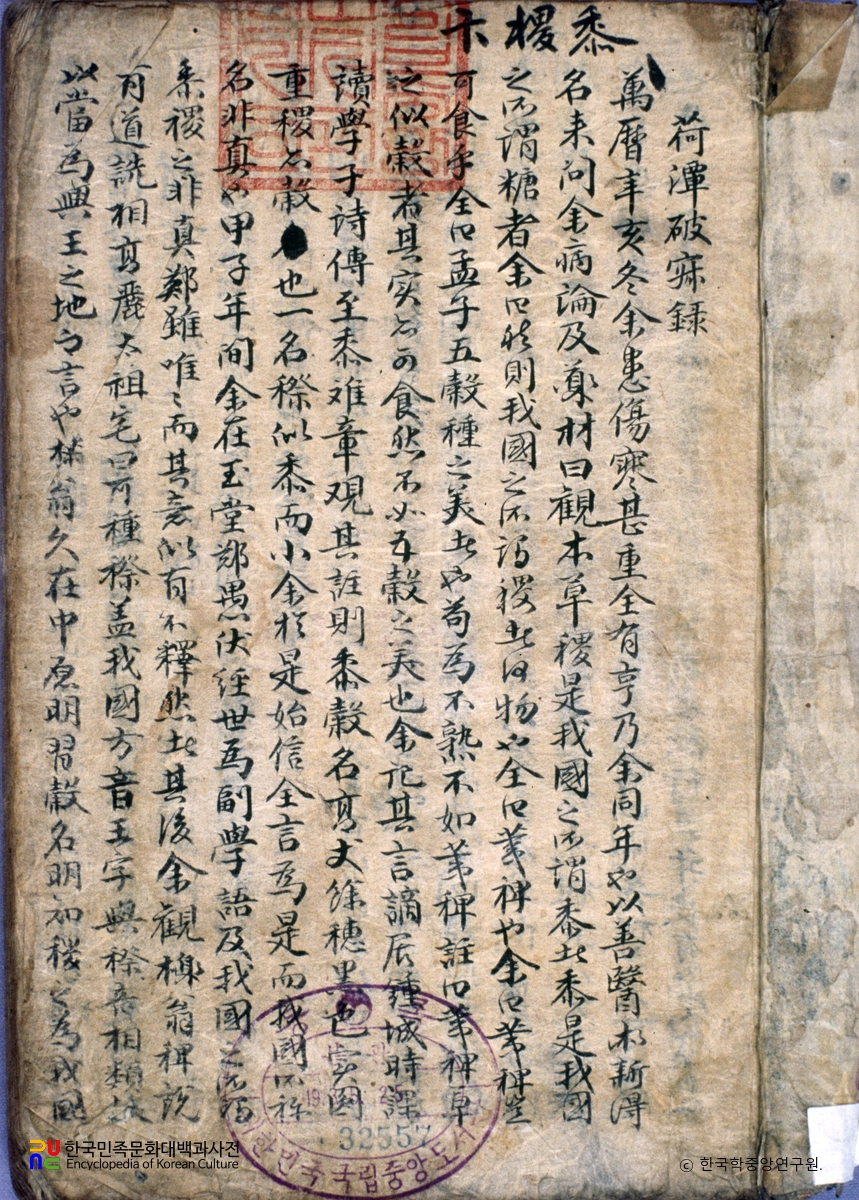 黍稷卞
荷潭破寂録
萬曆辛亥冬余患傷寒甚重全有亨乃余同年也以善醫術新得
名来问余病論及藥材曰觀本草稷是我國之所謂黍此黍是我國
之所謂糖者余曰然則我國之所謂稷者何物也全曰荑稗也余曰荑稗豈
可食乎全曰孟子五穀種之美者也苟為不熟不如荑稗註曰荑稗草
之似穀者其实亦可食然不如五穀之美也余記其言謫居鍾城時課
讀學子詩傳至黍離章观其註則黍穀名高丈餘穗黒色実圓
重稷亦穀也一名穄似黍而小余於是始信全言為是而我國所称
名非真也甲子年間余在玉堂鄭愚伏經世爲副學語及我國之所謂
黍稷之非真鄭雖唯〻而其意似有不釋然者其後余觀櫟翁稗説
有道詵相高麗太祖宅曰可種穄盖我國方音王字與穄音相類故
以當爲興王之地而言也櫟翁久在中原明習穀名明知稷之為我國
32557
한민족 국립중앙도서
한국민족문화대백과사전
Encyclopedia of Korean Culture
© 한국학중앙연구원.